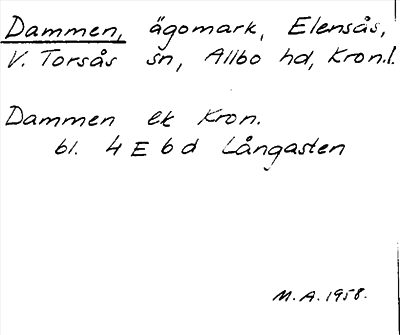 Dammen, ägomark, Elensås,
V. Torsås sn, Allbo hd, Kron.l.
Dammen ek Kron.
bl. 4 E 6 d Långasten
M.A. 1958.